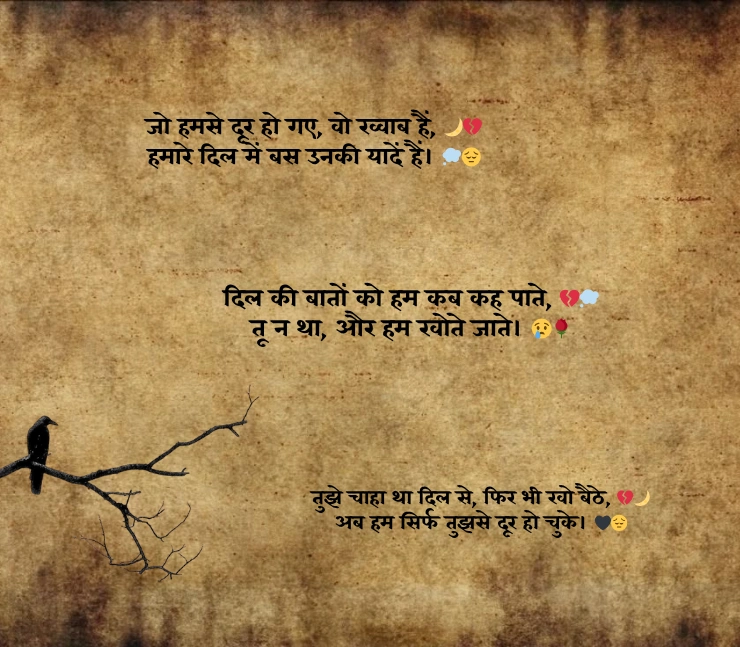 जो हमसे दूर हो गए, वो ख्वाब हैं, 🌙💔
हमारे दिल में बस उनकी यादें हैं। 💭😔
दिल की बातों को हम कब कह पाते, 💔💭
तू न था, और हम खोते जाते। 😢🌹
तुझे चाहा था दिल से, फिर भी खो बैठे, 💔🌙
अब हम सिर्फ तुझसे दूर हो चुके। 🖤😔